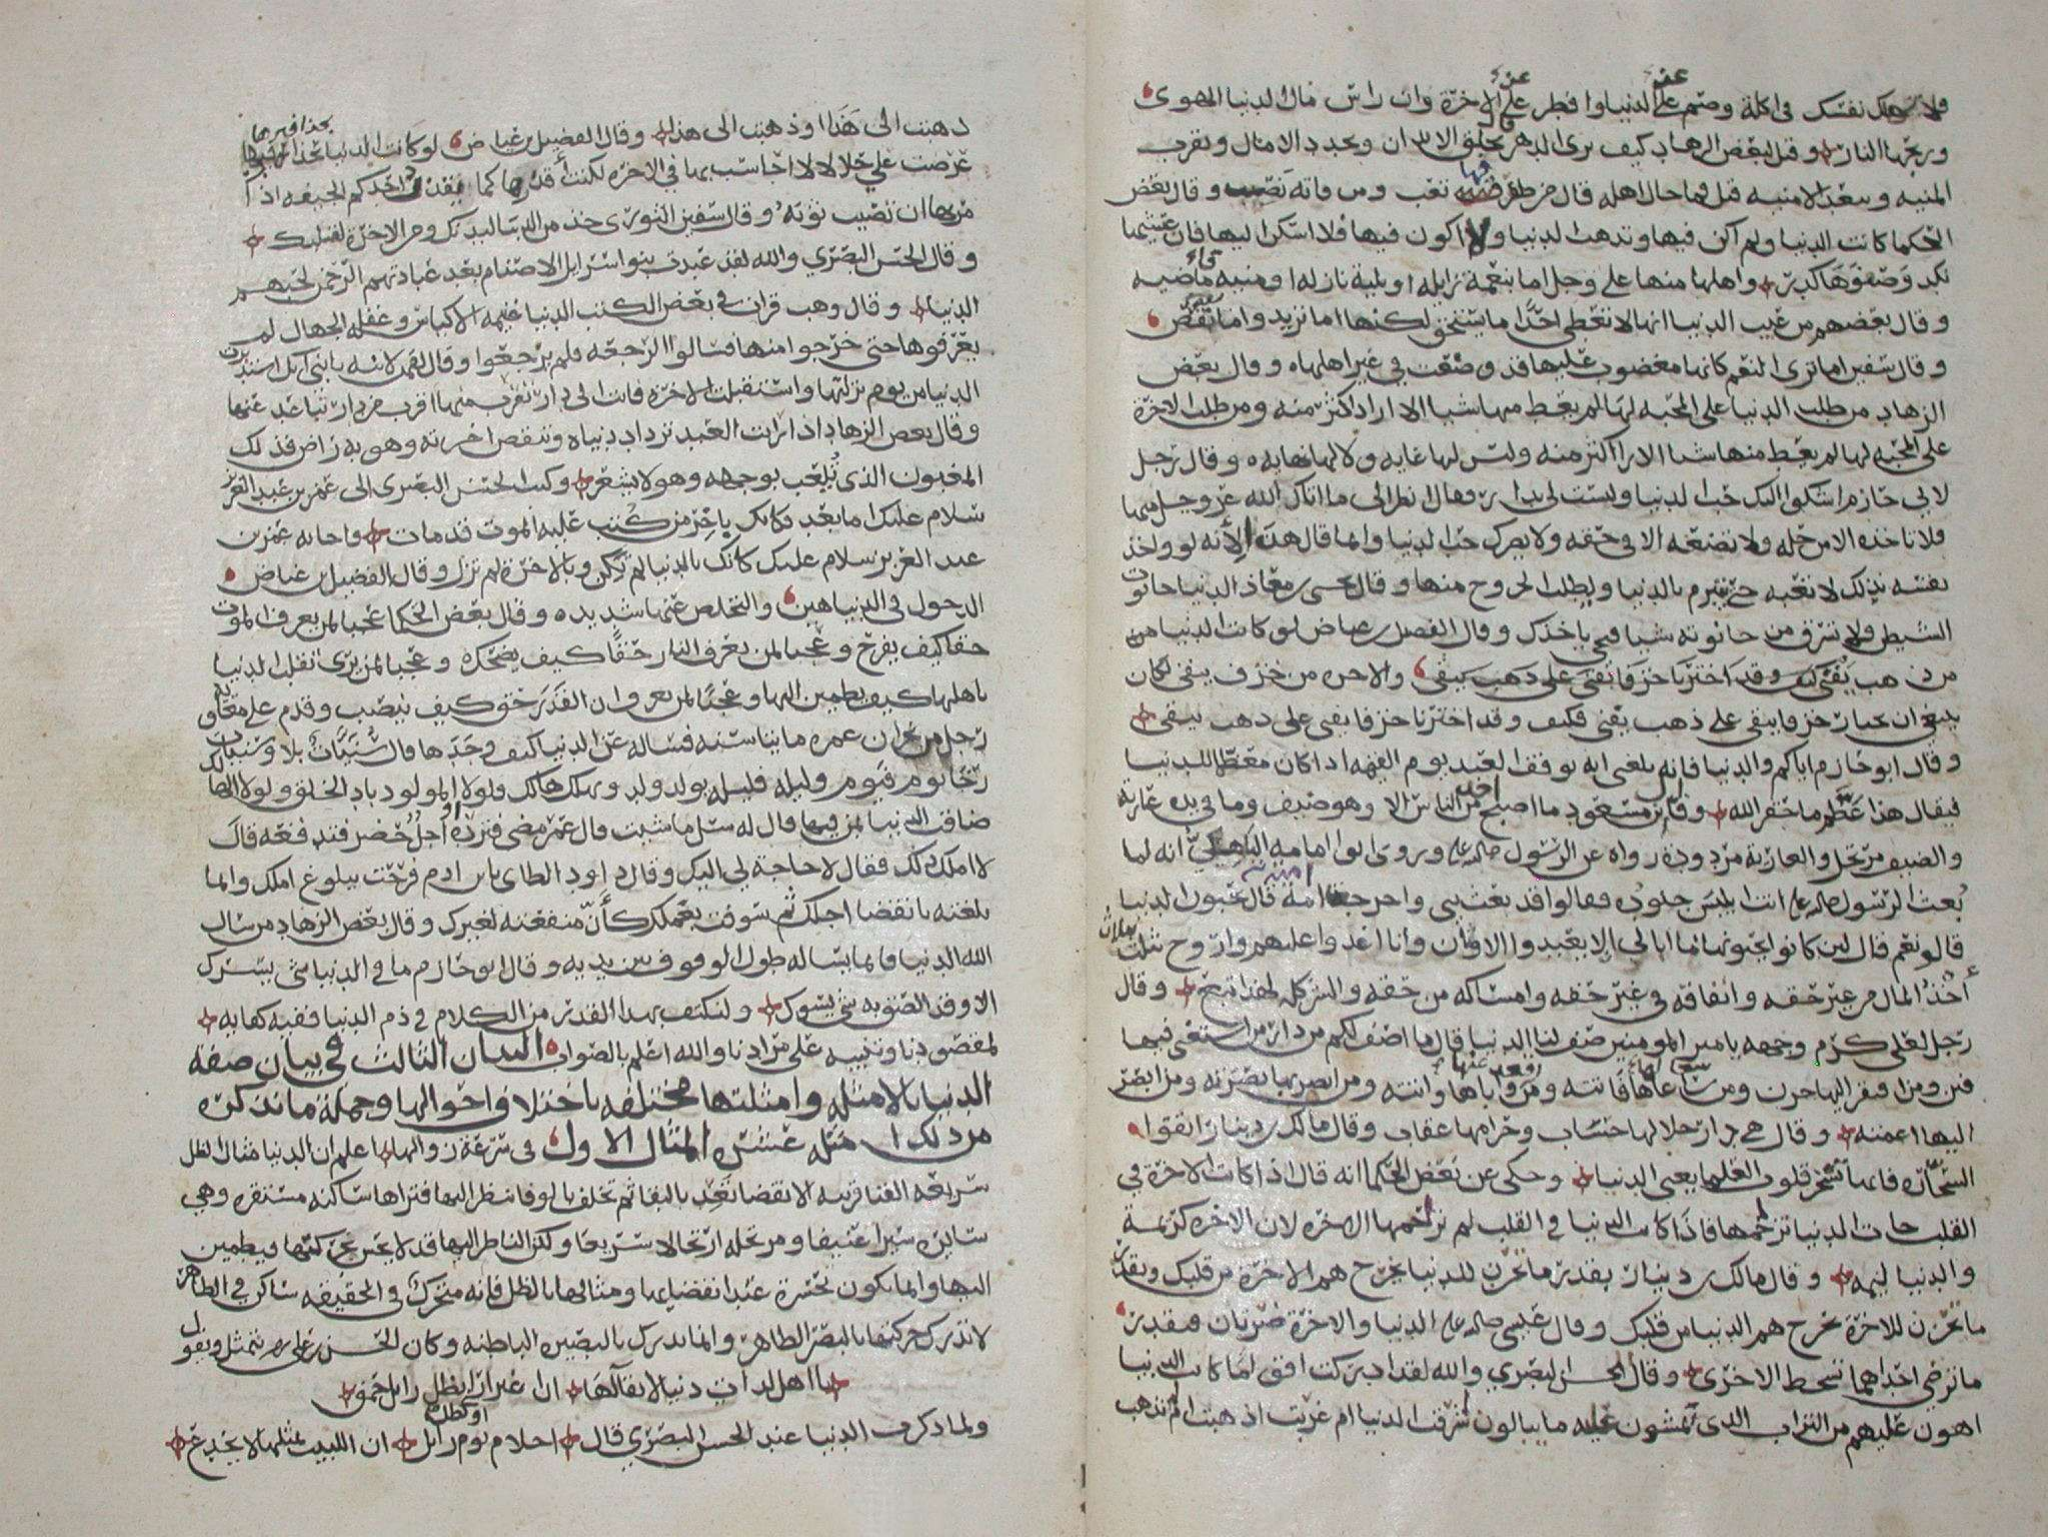 فلا تهلك نفسك في اكلة وصم على الدنيا وافطر على الاخرة وان راس مال الدنيا الهوى
وربحها النار وقيل لبعض الزهاد كيف ترى الدهر قال يخلق الابدان ويجدد الامال ويقرب
المنيه ويبعد الامنيه قيل فما حال اهله قال من ظفر به تعب ومن فاته نصب وقال بعض
الحكما كانت الدنيا ولم اكن فيها وتذهب الدنيا ولا اكون فيها فلا اسكن اليها فان عيشها
نكد وصفوها كدر واهلها منها على وجل اما بنعمة زايله او بلية نازله او منيه قاضيه
وقال بعضهم من عيب الدنيا انها لا تعطي احدا ما يستحق لكنها اما تزيد واما تنقص
وقال سفين اما ترى النعم كانها مغضوب عليها قد وضعت في غير اهلها وقال بعض
الزهاد من طلب الدنيا على المحبه لها لم يعط منها شيا الا اراد اكثر منه ومن طلب الاخرة
على المحبه لها لم يعط منها شيا الا اراد اكثر منه وليس لهذا غايه ولا لهذا نهايه وقال رجل
لابي حازم اشكوا اليك حب الدنيا وليست لي بدار فقال انظر الى ما اتاك الله عز وجل منها
فلا تاخذه الا من حله ولا تضعه الا في حقه ولا يضرك حب الدنيا وانما قال هذا لانه لو واخذ
نفسه بذلك لا تعبه حتى يتبرم بالدنيا ويطلب الخروج منها وقال يحيى بن معاذ الدنيا حانوت
الشيطن فلا تسرق من حانوته شيا فيجي ياخذك وقال الفضيل بن عياض لو كانت الدنيا من
من ذهب يفنى والاخره من خزف يبقى لكان
ينبغي ان نختار خزفا يبقى على ذهب يفنى فكيف وقد اخترنا خزفا يفنى على ذهب يبقى
وقال ابو حازم اياكم والدنيا فانه بلغني انه يوقف العبد يوم القيمه اذا كان معظما للدنيا
فيقال هذا عظم ما حقر الله وقال ابن مسعود ما اصبح احد من الناس الا وهو ضيف وما في يده عارية
والضيف مرتحل والعارية مردودة رواه عن الرسول صلى الله عليه وروى ابو امامه الباهلي انه لما
بعث الرسول صلى الله عليه اتت ابليس جنوده فقالوا قد بعث نبي واخرجت امة قال يحبون الدنيا
قالو نعم قال لين كانو يحبونها ما ابالي الا يعبدوا الاوثان وانا اغدوا عليهم واروح بثلاث
أخذ المال من غير حقه وانفاقه في غير حقه وامساكه من حقه والشر كله لهذا تبع وقال
رجل لعلي كرم وجهه يا امير المومنين صف لنا الدنيا قال ما اصف لكم من دار من استغنى فيها
فتن ومن افتقر اليها حزن ومن ساعاها فاتته ومن اباها واتته ومن ابصر بها بصرته ومن ابصر
اليها اعمته وقال هي دار حلالها حساب وحرامها عقاب وقال مالك بن دينار اتقوا
السحاره فانها تسحر قلوب العلما يعني الدنيا وحكى عن بعض الحكما انه قال اذا كانت الاخرة في
القلب جات الدنيا تزحمها فاذا كانت الدنيا في القلب لم تزحمها الاخره لان الاخره كريمة
والدنيا ليمه وقال مالك بن دينار بقدر ما تحزن للدنيا يخرج هم الاخرة من قلبك وبقدر
ما تحزن للاخرة يخرج هم الدنيا من قلبك وقال عيسى صلى الله عليه الدنيا والاخرة ضرتان فبقدر
ما ترضي احداهما تسخط الاخرى وقال الحسن البصري والله لقد ادركت اقواما كانت الدنيا
اهون عليهم من التراب الذي تمشون عليه ما يبالون اشرقت الدنيا ام غربت اذهبت ام تذهب
ذهبت الى هذا او ذهبت الى هذا وقال الفضيل بن عياض لو كانت الدنيا بحذافيرها
عرضت علي حلالا لا احاسب بها في الاخرة لكنت أقذرها كما يقذر احدكم الجيفه اذا
مر بها ان تصيب ثوبه وقال سفين الثوري خذ من الدنيا لبدنك ومن الاخرة لقلبك
وقال الحسن البصري والله لقد عبدت بنوا اسرايل الاصنام بعد عبادتهم الرحمن لحبهم
الدنيا وقال وهب قرات في بعض الكتب الدنيا غنيمه الاكياس وغفله الجهال لم
يعرفوها حتى خرجوا منها فسالوا الرجعه فلم يرجعوا وقال لقمن لابنه يا بني انك استدبرت
الدنيا من يوم نزلتها واستقبلت الاخرة فانت الى دار تقرب منها اقرب من دار تباعد عنها
وقال بعض الزهاد اذا رايت العبد تزداد دنياه وتنقص اخرته وهو به راض فذلك
المغبون الذي يلعب بوجهه وهو لا يشعر وكتب الحسن البصري الى عمر بن عبد العزيز
سلام عليك اما بعد فكانك باخر من كتب عليه الموت قد مات واجابه عمر بن
عبد العزيز سلام عليك كانك بالدنيا لم تكن وبالاخرة لم تزل وقال الفضيل بن عياض
الدخول في الدنيا هين والتخلص عنها شديد وقال بعض الحكما عجبا لمن يعرف الموت
حقا كيف يفرح وعجبا لمن يعرف النار حقا كيف يضحك وعجبا لمن يرى تقلب الدنيا
باهلها كيف يطمين اليها وعجبا لمن يعرف ان القدر حق كيف ينصب وقدم على معاويه
رجل من نجران عمره مايتا سنه فساله عن الدنيا كيف وجدها قال سنيات بلا وسنيات
رخا يوم فيوم وليله فليله يولد ولد ويهلك هالك فلولا المولود باد الخلق ولولا الهالك
ضاقت الدنيا بمن فيها قال له سل ما شيت قال عمر مضى فترده او اجل حضر فتدفعه قال
لا املك ذلك فقال لا حاجة لي اليك وقال داود الطاي يابن ادم فرحت ببلوغ املك وانما
بلغته بانقضا اجلك ثم سوفت بعملك كأن منفعته لغيرك وقال بعض الزهاد من سال
الله الدنيا فانما يساله طول الوقوف بين يديه وقال ابو حازم ما في الدنيا شي يسرك
الا وقد الصق به شي يسوك ولنكتف بهذا القدر من الكلام في ذم الدنيا ففيه كفايه
لمقصودنا وتنبيه على مرادنا والله اعلم بالصواب البيان الثالث في بيان صفة
الدنيا بالامثله وامثلتها مختلفه باختلاف احوالها وجملة ما نذكره
من ذلك امثله عشره المثال الاول في سرعة زوالها اعلم ان الدنيا مثال الظل
سريعه الفنا قريبه الانقضا تعد بالبقا ثم تخلف بالوفا تنظر اليها فتراها ساكنه مستقره وهي
سايره سيرا عنيفا ومرتحله ارتحالا سريعا ولكن الناظر اليها قد لا يحس بحركتها فيطمين
اليها وانما يكون تحسره عند انقضايها ومثالها بالظل فانه متحرك في الحقيقه ساكن في الظاهر
لا تدرك حركتها بالبصر الظاهر وانما تدرك بالبصيره الباطنه وكان الحسن بن علي يتمثل ويقول
يا اهل لذات دنيا لا بقا لها ان اغترارا بظل زايل حمق
ولما ذكرت الدنيا عند الحسن البصري قال احلام نوم او كظل زايل ان اللبيب بمثلها لا يخدع